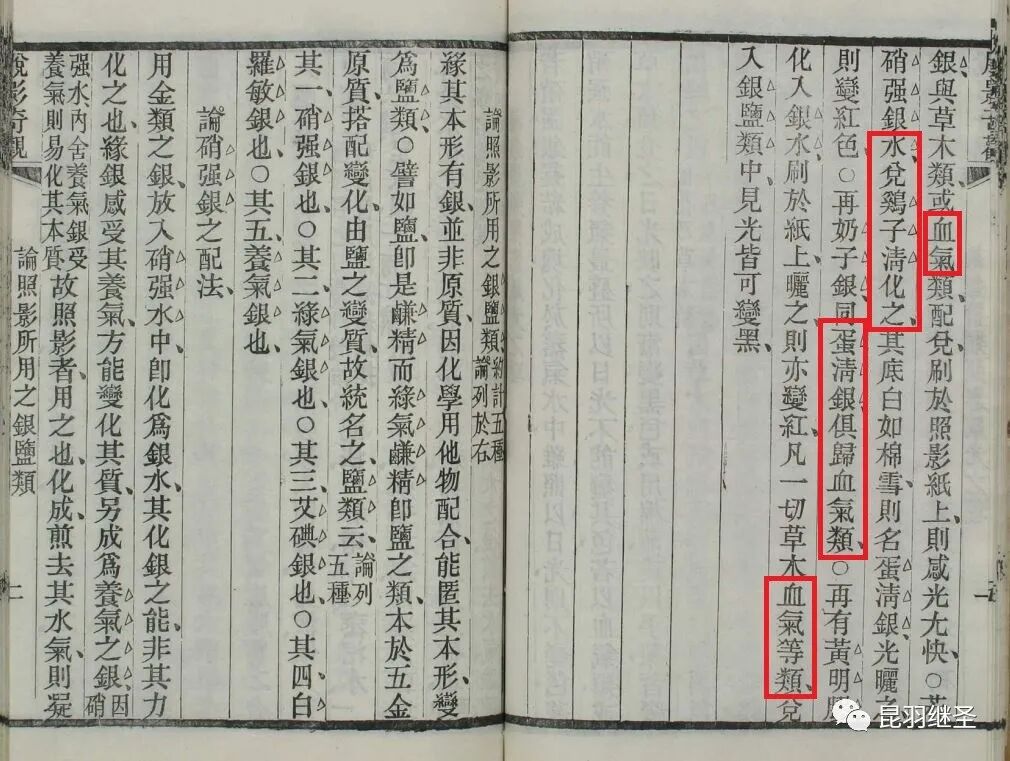 銀與草木類或血氣類配兌刷於照影紙上則咸光尤快○
硝强銀水兌鷄子清化之其底白如棉雪則名蛋淸銀光曬
則變紅色○再奶子銀同蛋淸銀俱歸血氣類○再有黃明
化入銀水刷於紙上曬之則亦變紅凡一切草木血氣等類兌
入銀鹽類中見光皆可變黑
論照影所用之銀鹽類約計五種論列於右
緣其本形有銀並非原質因化學用他物配合能匿其本形變
爲鹽類○譬如鹽卽是鹻精而綠氣鹻精卽鹽之類本於五金
原質搭配變化由鹽之變質故統名之鹽類云論列五種
其一硝强銀也○其二綠氣銀也○其三艾碘銀也○其四白
羅敏銀也○其五養氣銀也
論硝强銀之配法
用金類之銀放入硝强水中卽化爲銀水其化銀之能非其力
化之也緣銀感受其養氣方能變化其質另成爲養氣之銀因硝
强水內含養氣銀受養氣則易化其本質故照影者用之也化成煎去其水氣則凝
脫影奇觀
論照影所用之銀鹽類
二
昆羽继圣